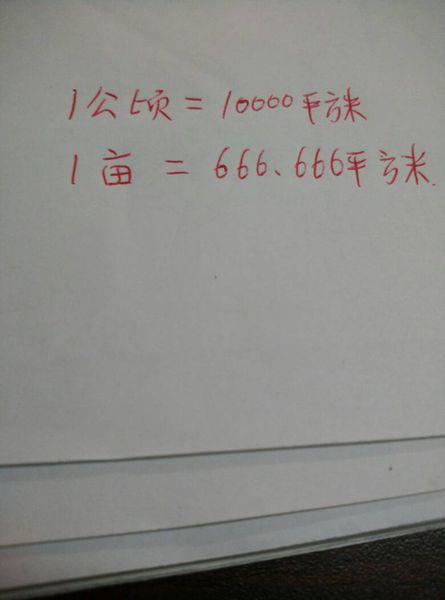 1公顷=10000平方米
1亩=666.666平方米